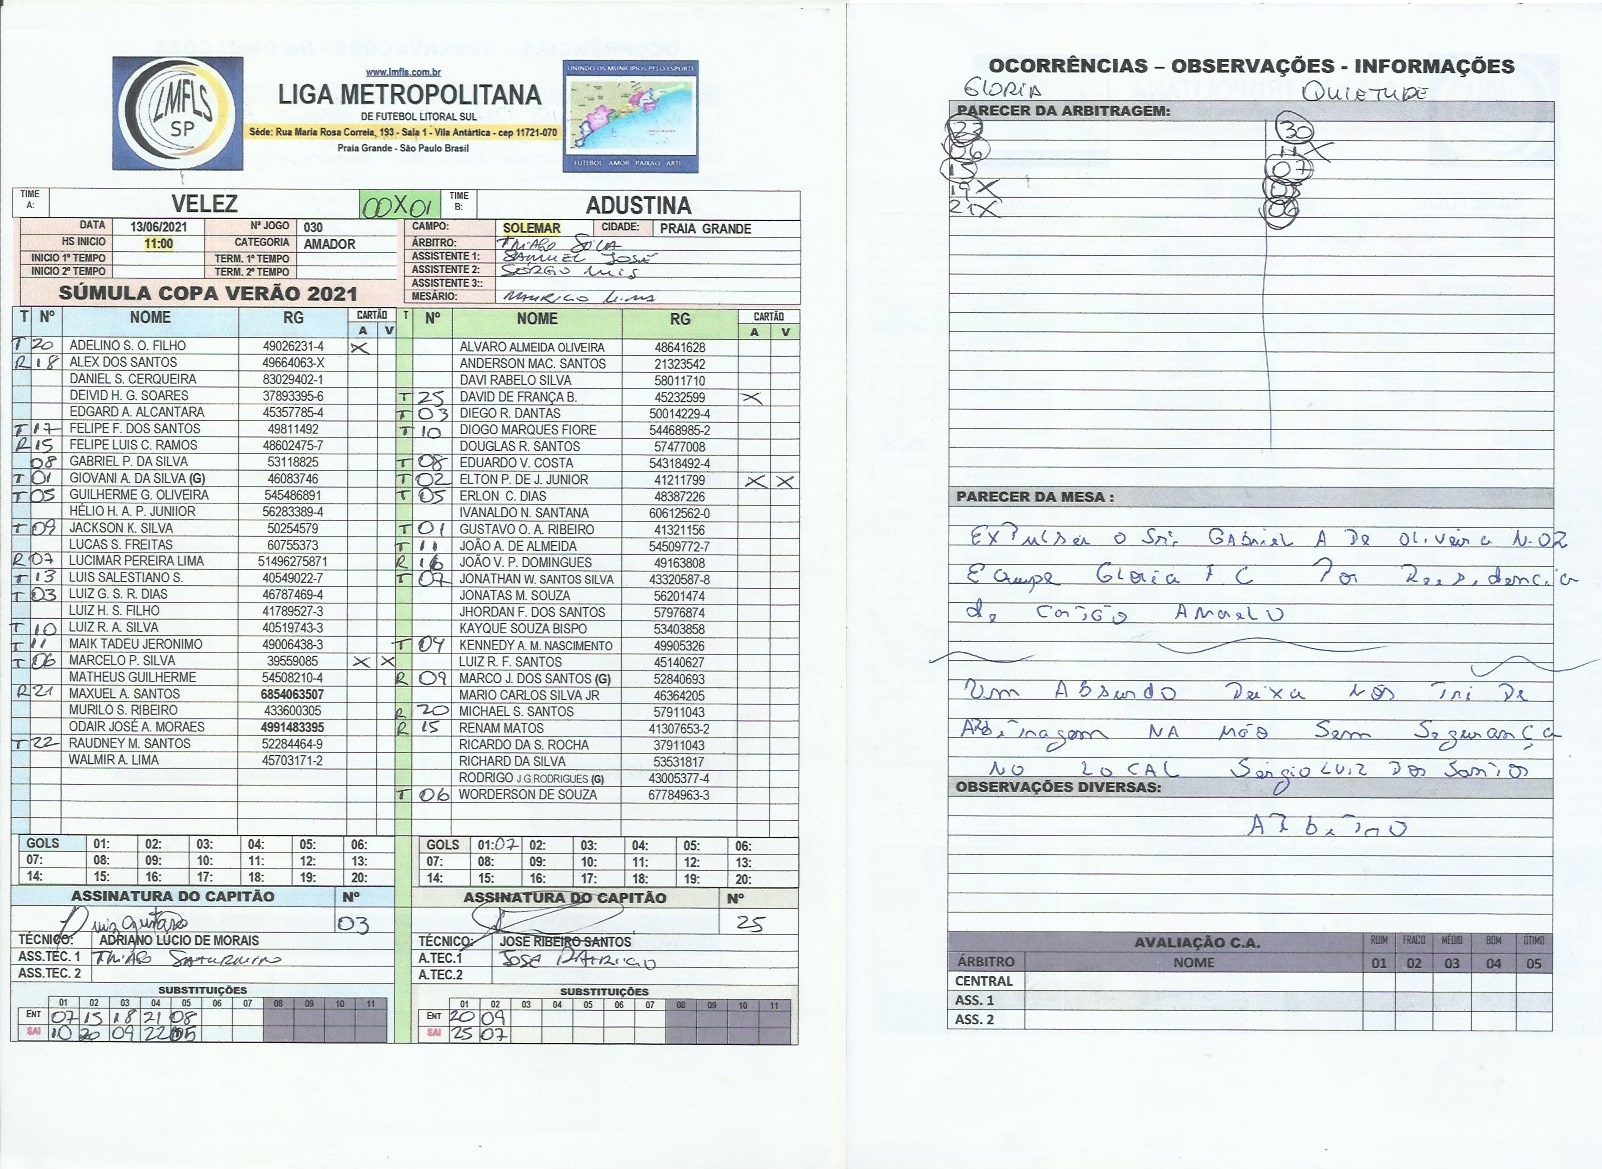 www.lmfls.com.br
LMFLS
SP
LIGA METROPOLITANA
DE FUTEBOL LITORAL SUL
Séde: Rua Maria Rosa Correia, 193 - Sala 1 - Vila Antártica - cep 11721-070
Praia Grande - São Paulo Brasil
UNINDO OS MUNICIPIOS PELO ESPORTE
FUTEBOL AMOR PAIXAO ARTE
TIME A: VELEZ 00X01 TIME B: ADUSTINA
DATA 13/06/2021 Nº JOGO 030 CAMPO: SOLEMAR CIDADE: PRAIA GRANDE
HS INICIO 11:00 CATEGORIA AMADOR ÁRBITRO: THIAGO SILVA
INICIO 1º TEMPO TERM. 1º TEMPO ASSISTENTE 1: SAMUEL JOSÉ
INICIO 2º TEMPO TERM. 2º TEMPO ASSISTENTE 2: SÉRGIO LUIS
ASSISTENTE 3::
SÚMULA COPA VERÃO 2021 MESÁRIO: MAURICIO LIMA
T Nº NOME RG CARTÃO A V
T 20 ADELINO S. O. FILHO 49026231-4 X
R 18 ALEX DOS SANTOS 49664063-X
DANIEL S. CERQUEIRA 83029402-1
DEIVID H. G. SOARES 37893395-6
EDGARD A. ALCANTARA 45357785-4
T 17 FELIPE F. DOS SANTOS 49811492
R 15 FELIPE LUIS C. RAMOS 48602475-7
08 GABRIEL P. DA SILVA 53118825
T 01 GIOVANI A. DA SILVA (G) 46083746
T 05 GUILHERME G. OLIVEIRA 545486891
HÉLIO H. A. P. JUNIIOR 56283389-4
T 09 JACKSON K. SILVA 50254579
LUCAS S. FREITAS 60755373
R 07 LUCIMAR PEREIRA LIMA 51496275871
T 13 LUIS SALESTIANO S. 40549022-7
T 03 LUIZ G. S. R. DIAS 46787469-4
LUIZ H. S. FILHO 41789527-3
T 10 LUIZ R. A. SILVA 40519743-3
T 11 MAIK TADEU JERONIMO 49006438-3
T 06 MARCELO P. SILVA 39559085 X X
MATHEUS GUILHERME 54508210-4
R 21 MAXUEL A. SANTOS 6854063507
MURILO S. RIBEIRO 433600305
ODAIR JOSÉ A. MORAES 4991483395
T 22 RAUDNEY M. SANTOS 52284464-9
WALMIR A. LIMA 45703171-2
T Nº NOME RG CARTÃO A V
ALVARO ALMEIDA OLIVEIRA 48641628
ANDERSON MAC. SANTOS 21323542
DAVI RABELO SILVA 58011710
T 25 DAVID DE FRANÇA B. 45232599 X
T 03 DIEGO R. DANTAS 50014229-4
T 10 DIOGO MARQUES FIORE 54468985-2
DOUGLAS R. SANTOS 57477008
T 08 EDUARDO V. COSTA 54318492-4
T 02 ELTON P. DE J. JUNIOR 41211799 X X
T 05 ERLON C. DIAS 48387226
IVANALDO N. SANTANA 60612562-0
T 01 GUSTAVO O. A. RIBEIRO 41321156
T 11 JOÃO A. DE ALMEIDA 54509772-7
R 16 JOÃO V. P. DOMINGUES 49163808
T 07 JONATHAN W. SANTOS SILVA 43320587-8
JONATAS M. SOUZA 56201474
JHORDAN F. DOS SANTOS 57976874
KAYQUE SOUZA BISPO 53403858
T 04 KENNEDY A. M. NASCIMENTO 49905326
LUIZ R. F. SANTOS 45140627
R 09 MARCO J. DOS SANTOS (G) 52840693
MARIO CARLOS SILVA JR 46364205
R 20 MICHAEL S. SANTOS 57911043
R 15 RENAM MATOS 41307653-2
RICARDO DA S. ROCHA 37911043
RICHARD DA SILVA 53531817
RODRIGO J G RODRIGUES (G) 43005377-4
T 06 WORDERSON DE SOUZA 67784963-3
GOLS 01: 02: 03: 04: 05: 06:
07: 08: 09: 10: 11: 12: 13:
14: 15: 16: 17: 18: 19: 20:
ASSINATURA DO CAPITÃO Nº
Luiz Gustavo 03
TÉCNICO: ADRIANO LÚCIO DE MORAIS
ASS.TEC. 1 THIAGO SATURNINO
ASS.TEC. 2
SUBSTITUIÇÕES
01 02 03 04 05 06 07 08 09 10 11
ENT 07 15 18 21 08
SAI 10 20 09 22 05
GOLS 01:07 02: 03: 04: 05: 06:
07: 08: 09: 10: 11: 12: 13:
14: 15: 16: 17: 18: 19: 20:
ASSINATURA DO CAPITÃO Nº
25
TÉCNICO: JOSE RIBEIRO SANTOS
A.TEC.1 JOSÉ PATRICIO
A.TEC.2
SUBSTITUIÇÕES
01 02 03 04 05 06 07 08 09 10 11
ENT 20 09
SAI 25 07
OCORRÊNCIAS – OBSERVAÇÕES - INFORMAÇÕES
GLORIA QUIETUDE
PARECER DA ARBITRAGEM:
22 30
06 11 X
15 07
19 X
21 X 06
PARECER DA MESA :
EXPulsei o Sr. GAbriel A De oliveira N.02
Equipe Gloria F C Por Reesidencia
de CARTÃO AMARELO
Um ABsurdo Deixa Nós Tri De
ARbitragem NA MÃO Sem Segurança
NO LOCAL Sérgio LUIZ DOS SANTOS
OBSERVAÇÕES DIVERSAS:
ARbitRO
AVALIAÇÃO C.A. RUIM FRACO MÉDIO BOM ÓTIMO
ÁRBITRO NOME 01 02 03 04 05
CENTRAL
ASS. 1
ASS. 2